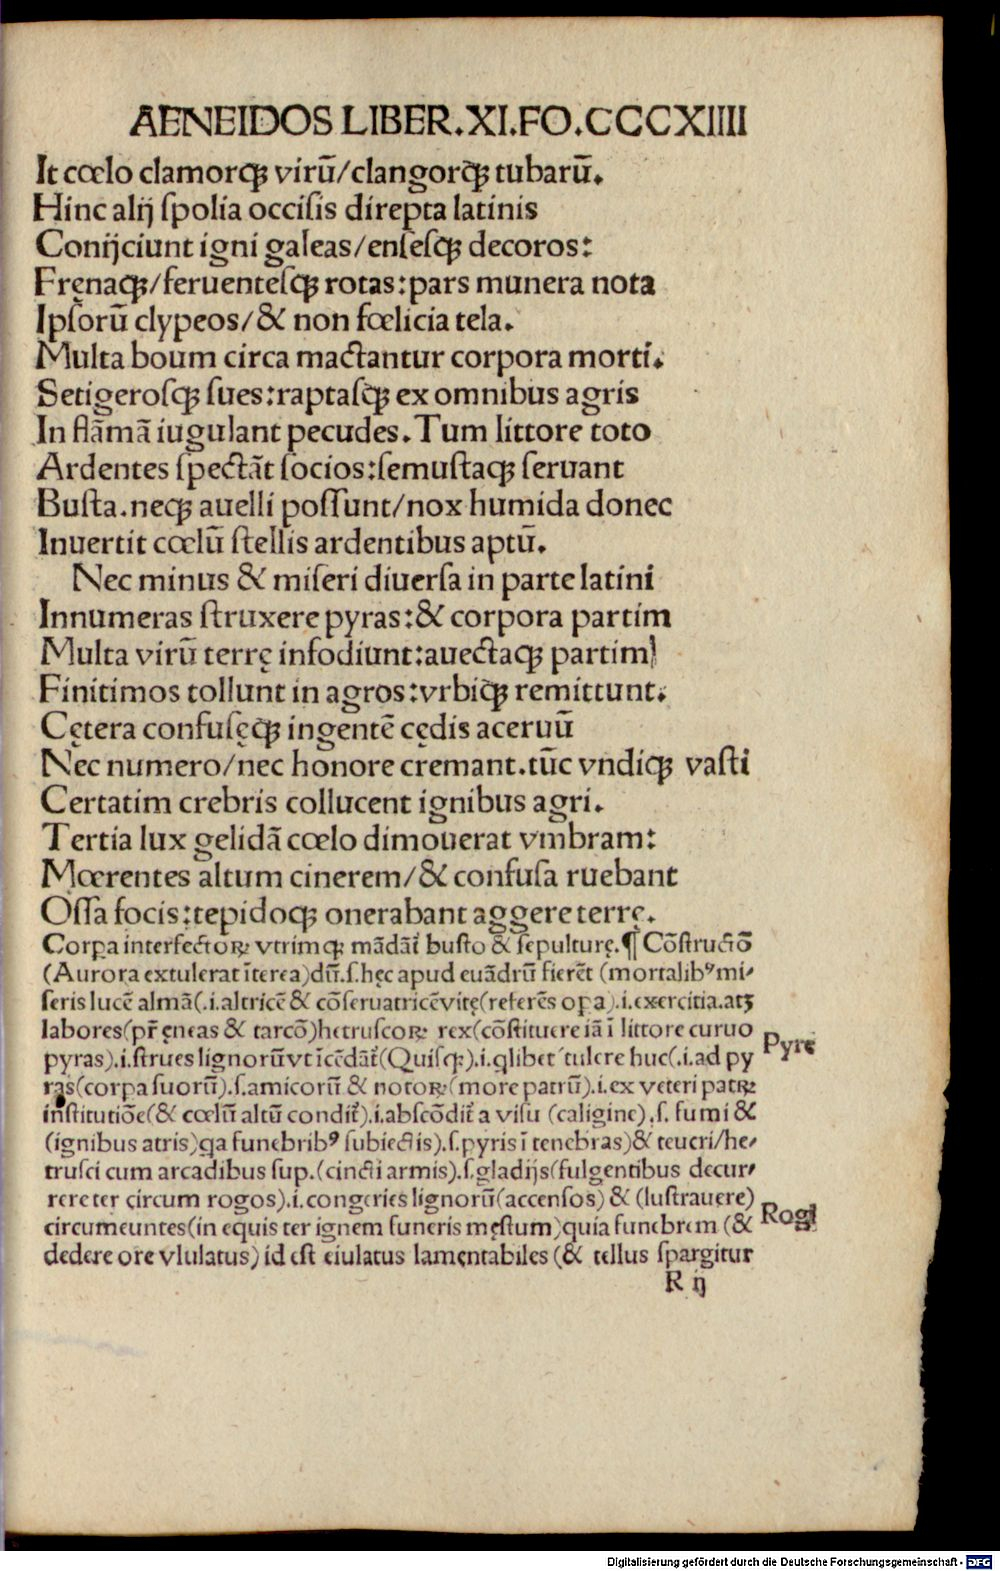 AENEIDOS LIBER.XI.FO.CCCXIIII
It cœlo clamorq; virū/clangorq; tubarū.
Hinc alij spolia occisis direpta latinis
Conijciunt igni galeas/ensesq; decoros:
Fręnaq;/feruentesq; rotas:pars munera nota
Ipsorū clypeos/& non fœlicia tela.
Multa boum circa mactantur corpora morti.
Setigerosq; sues:raptasq; ex omnibus agris
In flāmā iugulant pecudes.Tum littore toto
Ardentes spectāt socios:semustaq; seruant
Busta.neq; auelli possunt/nox humida donec
Inuertit cœlū stellis ardentibus aptū.
Nec minus & miseri diuersa in parte latini
Innumeras struxere pyras:& corpora partim
Multa virū terrę infodiunt:auectaq; partim
Finitimos tollunt in agros:vrbiq; remittunt.
Cętera confusęq; ingentē cędis aceruū
Nec numero/nec honore cremant.tūc vndiq; vasti
Certatim crebris collucent ignibus agri.
Tertia lux gelidā cœlo dimouerat vmbram:
Mœrentes altum cinerem/& confusa ruebant
Ossa focis:tepidoq; onerabant aggere terrę.
Corpa interfectoꝝ vtrimq; mādāt̄ busto & sepulturę.¶ Cōstructiō
(Aurora extulerat īterea)dū.s.hęc apud euādrū fierēt (mortalibꝰ mi-
seris lucē almā(.i.altricē & cōseruatricē vitę(referēs oꝑa).i.exercitia.atꝫ
labores(pr̄ ęneas & tarcō)hetruscoꝝ rex(cōstituere iā ī littore curuo
pyras).i.strues lignorū vt īcēdāt̄(Quisq;).i.qlibet tulere huc(.i.ad py
Pyrę
ras(corpa suorū).s.amicorū & notoꝝ(more patrū).i.ex veteri patꝝ
institutiōe(& cœlū altū condit̄).i.abscōdit̄ a visu (caligine).s.fumi &
(ignibus atris)qa funebribꝰ subiectis).s.pyris ī tenebras)& teucri/he-
trusci cum arcadibus sup.(cincti armis).s.gladijs(fulgentibus decur-
rere ter circum rogos).i.congeries lignorū(accensos) & (lustrauere)
Rogi
circumeuntes(in equis ter ignem funeris męstum)quia funebrem (&
dedere ore vlulatus) id est eiulatus lamentabiles (& tellus spargitur
R ij
Digitalisierung gefördert durch die Deutsche Forschungsgemeinschaft - DFG